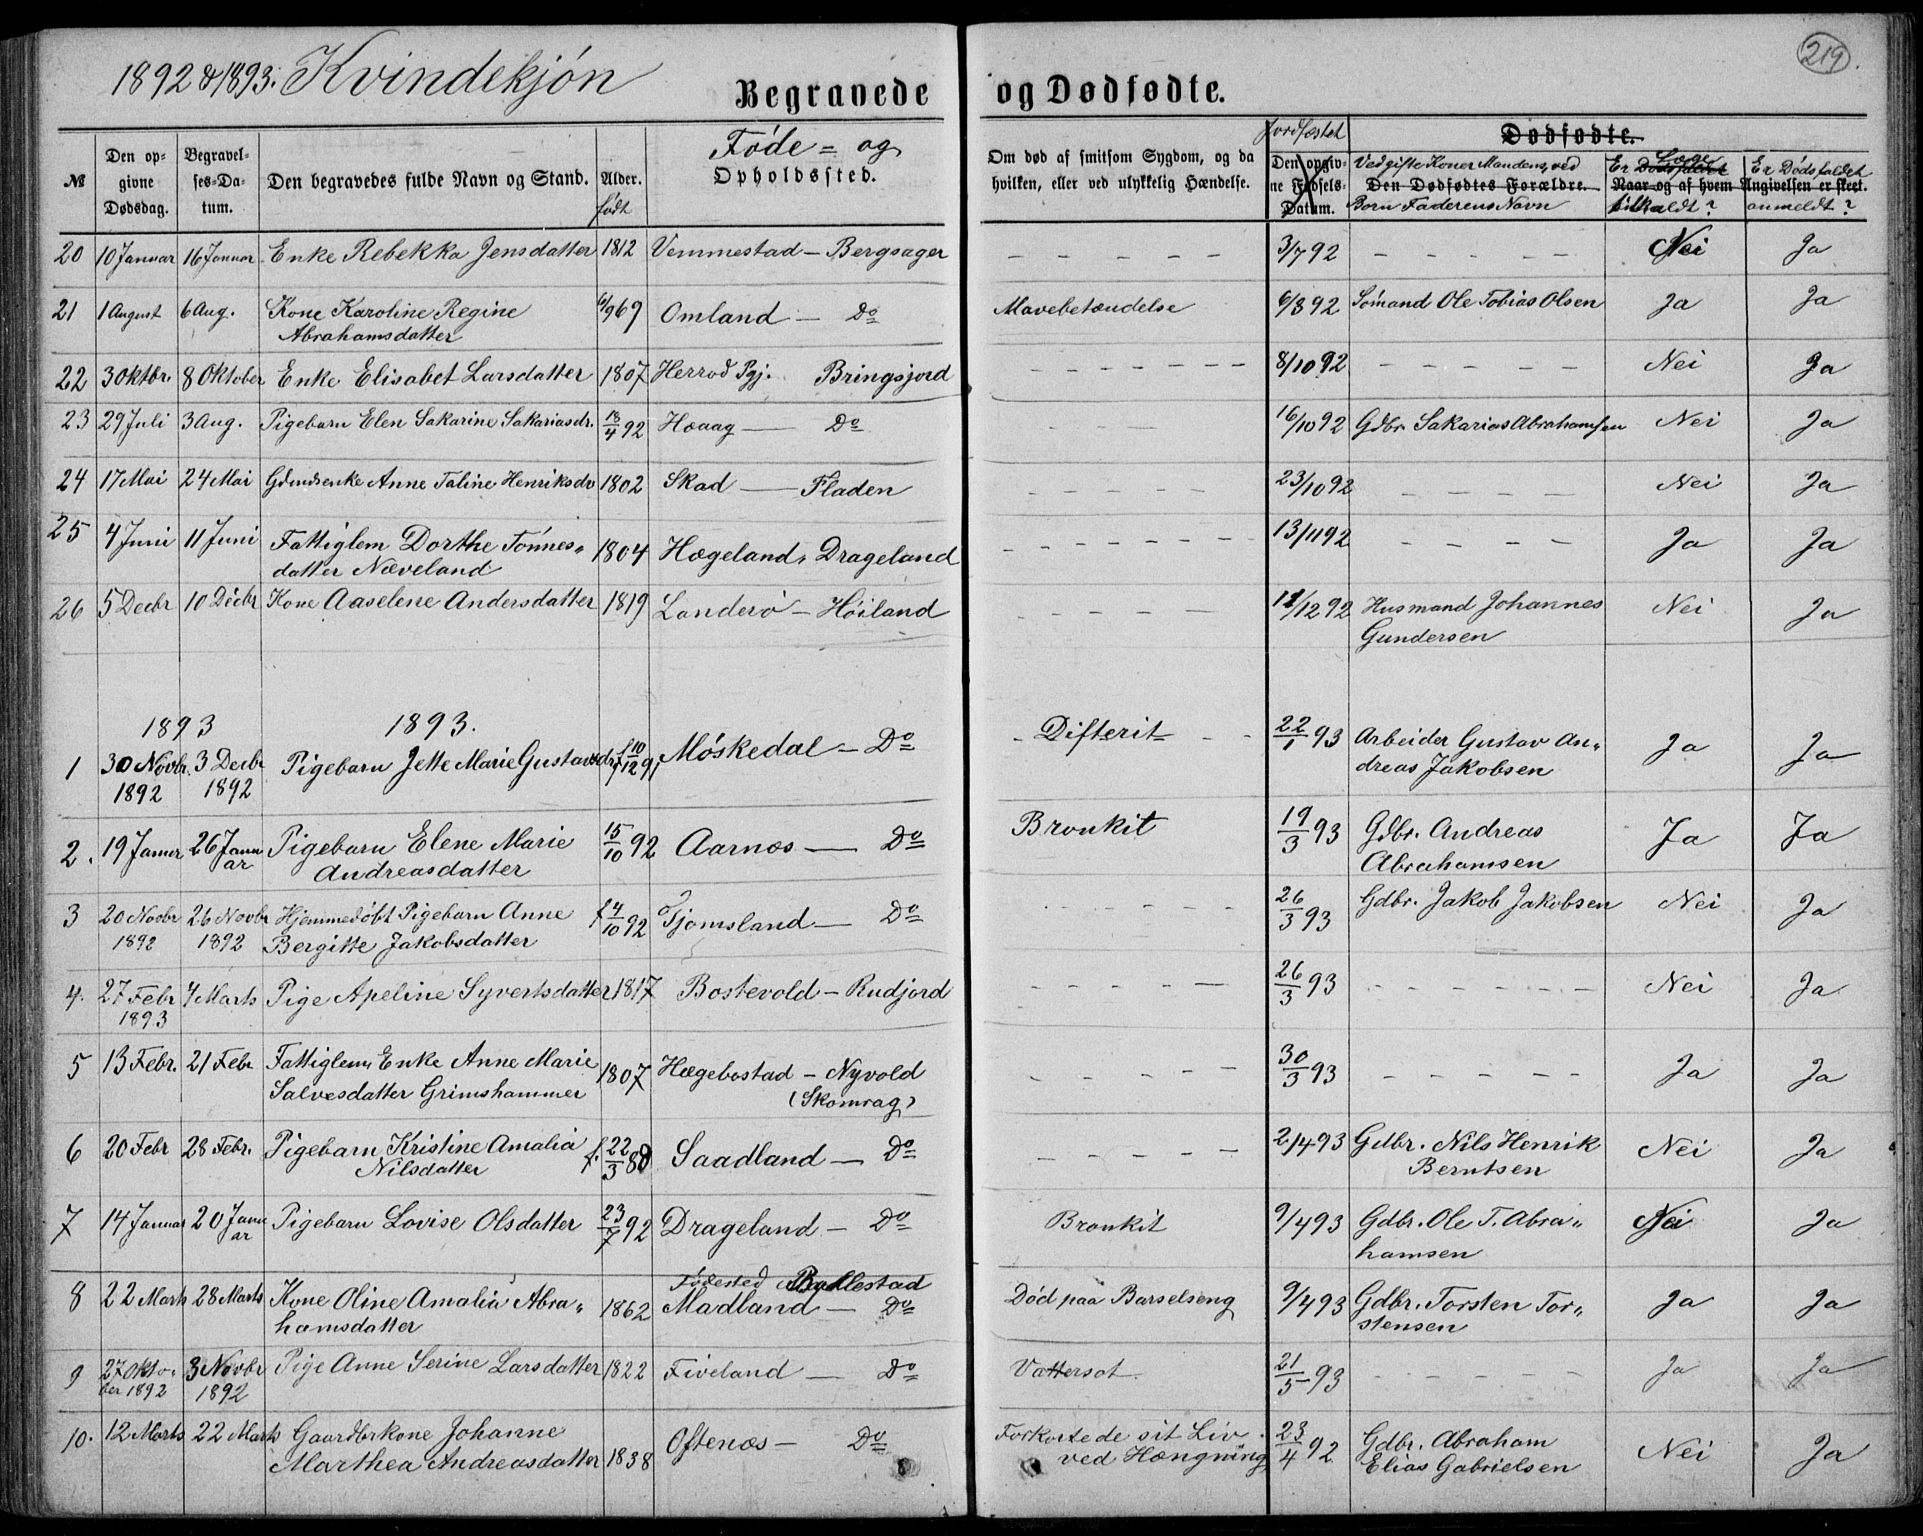 219
1892 & 1893. Kvindekjön
Begravede og Dødfødte.
№
Den opgivne Dødsdag.
Begravelses-Datum.
Den begravedes fulde Navn og Stand.
Alder. født
Föde- og Opholdssted.
Om død af smitsom Sygdom, og da hvilken, eller ved ulykkelig Hændelse.
Jordfæstet
Den opgivne Fødsels-Datum.
Dødfødte.
Ved gifte Koner Mandens, ved
Den Dødfødtes Forældre.
Børn Faderens Navn
Er Læge tilkaldt?
Naar og af hvem Angivelsen er skeet.
Er Dödsfaldet anmeldt?
20 10 Januar 16 Januar Enke Rebekka Jensdatter 1812 Vemmestad – Bergsager – – – – – 3/7 92 – – – – – Nei Ja
21 1 August 6 Aug. Kone Karoline Regine 6/9 69 Omland – Do Mavebetændelse 6/8 92 Sömand Ole Tobias Olsen Ja Ja
Abrahamsdatter
22 3 Oktbr. 8 Oktober Enke Elisabet Larsdatter 1807 Herrod Pgj. Bringsjord – – – – – – 8/10 92 – – – – – Nei Ja
23 29 Juli 3 Aug. Pigebarn Elen Sakarine Sakariasdr. 13/4 92 Høaag — Do – – – 16/10 92 Gdbr. Sakarias Abrahamsen Nei Ja
24 17 Mai 24 Mai Gdmdsenke Anne Taline Henriksdr 1802 Skad — Fladen – – – – – 23/10 92 – – – – Nei Ja
25 4 Juni 11 Juni Fattiglem Dorthe Tönnes- 1804 Hægeland, Drageland – – – – – – 13/11 92 – – – – Ja Ja
datter Næveland
26 5 Decbr 10 Decbr Kone Aaselene Andersdatter 1819 Landerö – Höiland – – – – 11/12 92 Husmand Johannes Nei Ja
Gundersen
1893 1893.
1 30 Novbr. 3 Decbr Pigebarn Jette Marie Gustavsdr. f 10/12 91 Möskedal – Do – Difterit – – 22/1 93 Arbeider Gustav An- Ja Ja
1892 1892 dreas Jakobsen
2. 19 Januar 26 Janu Pigebarn Elene Marie 15/10 92 Aarnæs — Do Bronkit 19/3 93 Gdbr. Andreas Ja Ja
ar Andreasdatter Abrahamsen
3 20 Novbr 26 Novbr Hjemmedöbt Pigebarn Anne f 4/10 92 Tjomsland – Do – – – – – 26/3 93 Gdbr. Jakob Jakobsen Nei Ja
1892 1892 Bergitte Jakobsdatter
4. 27 Febr 7 Marts Pige Apeline Syvertsdatter 1817 Bostevold – Rudjord – – – – – 26/3 93 – – – – – – Nei Ja
1893
5 13 Febr. 21 Febr Fattiglem, Enke Anne Marie 1807 Hægebostad – Nyvold – – – – – 30/3 93 – – – – – Ja Ja
Salvesdatter Grimshammer (Skomrag)
6 20 Febr 28 Febr. Pigebarn Kristine Amalia f. 22/3 88 Saadland – Do – – – – – 2/4 93 Gdbr. Nils Henrik Nei Ja
Nilsdatter Berntsen
7 14 Januar 20 Janu Pigebarn Lovise Olsdatter 23/7 92 Drageland – Do Bronkit 9/4 93 Gdbr. Ole T. Abra- Nei Ja
ar hamsen
Födested Ballestad
8 22 Marts 28 Marts Kone Oline Amalia Abra- 1862 Madland – Do Död paa Barselseng 9/4 93 Gdbr. Torsten Tor- Ja Ja
hamsdatter stensen
9 27 Okto- 3 Novbr Pige Anne Serine Larsdatter 1822 Fiveland — Do Vattersot 21/5 93 – – – – – Ja Ja
ber 1892 1892
10. 12 Marts 22 Marts Gaardbrkone Johanne 1838 Oftenæs – Do Forkortede sit Liv 23/4 92 Gdbr. Abraham Nei Ja
Marthea Andreasdatter ved Hængning Elias Gabrielsen